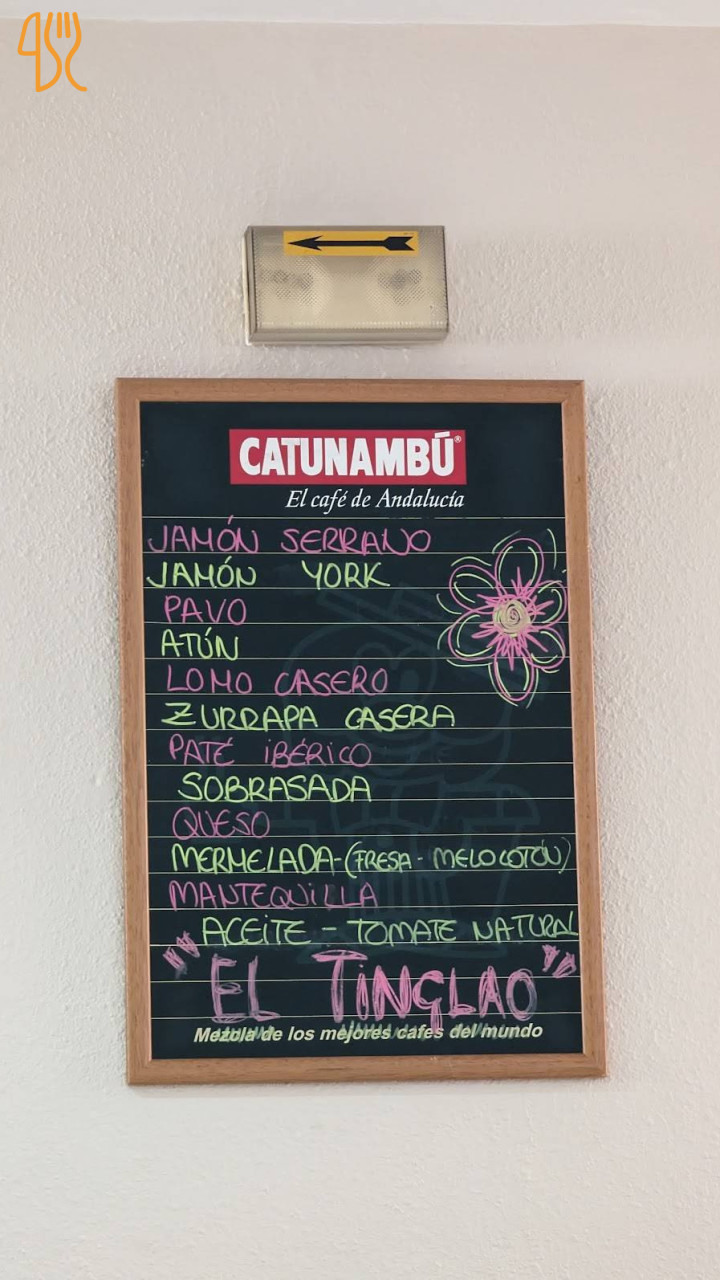 CATUNAMBÚ®
El café de Andalucía
JAMÓN SERRANO
JAMÓN YORK
PAVO
ATÚN
LOMO CASERO
ZURRAPA CASERA
PATÉ IBÉRICO
SOBRASADA
QUESO
MERMELADA-(FRESA - MELOCOTÓN)
MANTEQUILLA
ACEITE - TOMATE NATURAL
"EL TINGLAO"
Mezcla de los mejores cafes del mundo